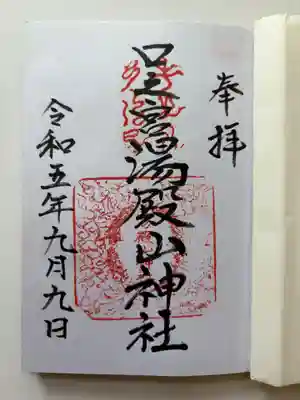 奉拝
口之宮湯殿山神社
令和五年九月九日